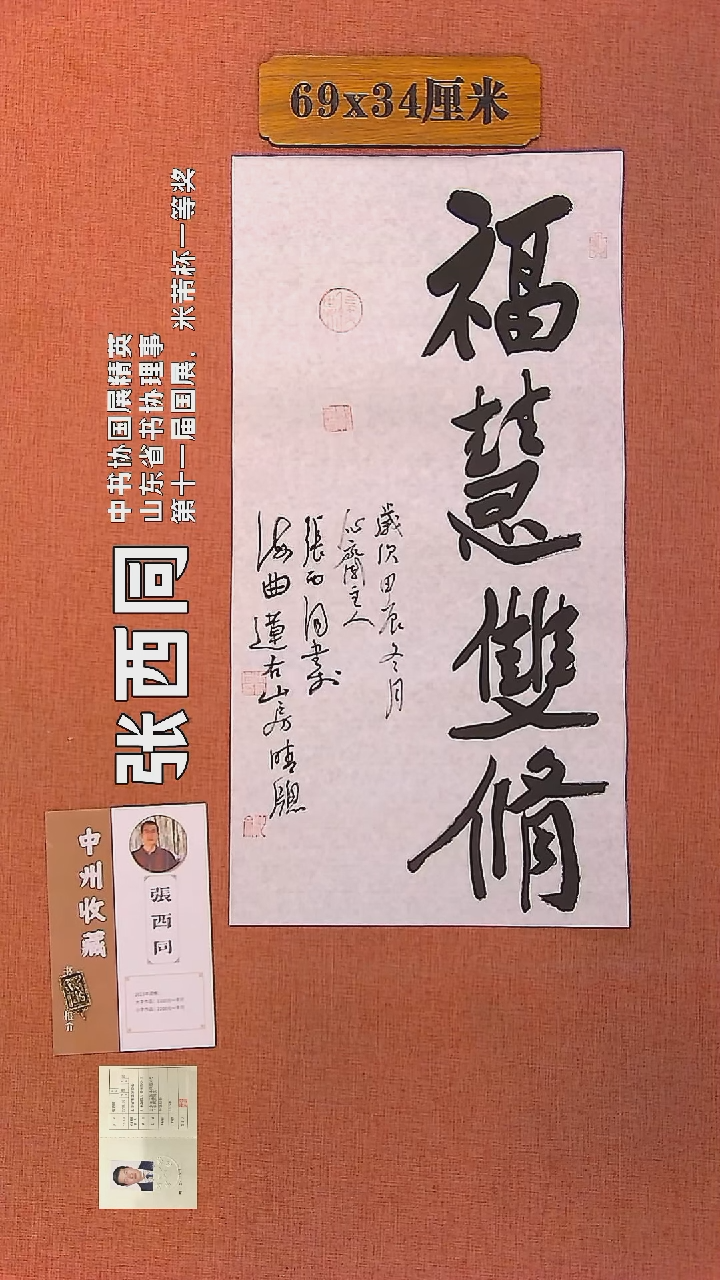 69x34厘米
福慧雙脩
歲次甲辰冬月
沁蘭閣主人
張西同書於
海曲蓮右山房晴窻
张西同
中书协国展精英
山东省书协理事
第十一届国展、米芾杯一等奖
中州收藏
書
推介
張西同